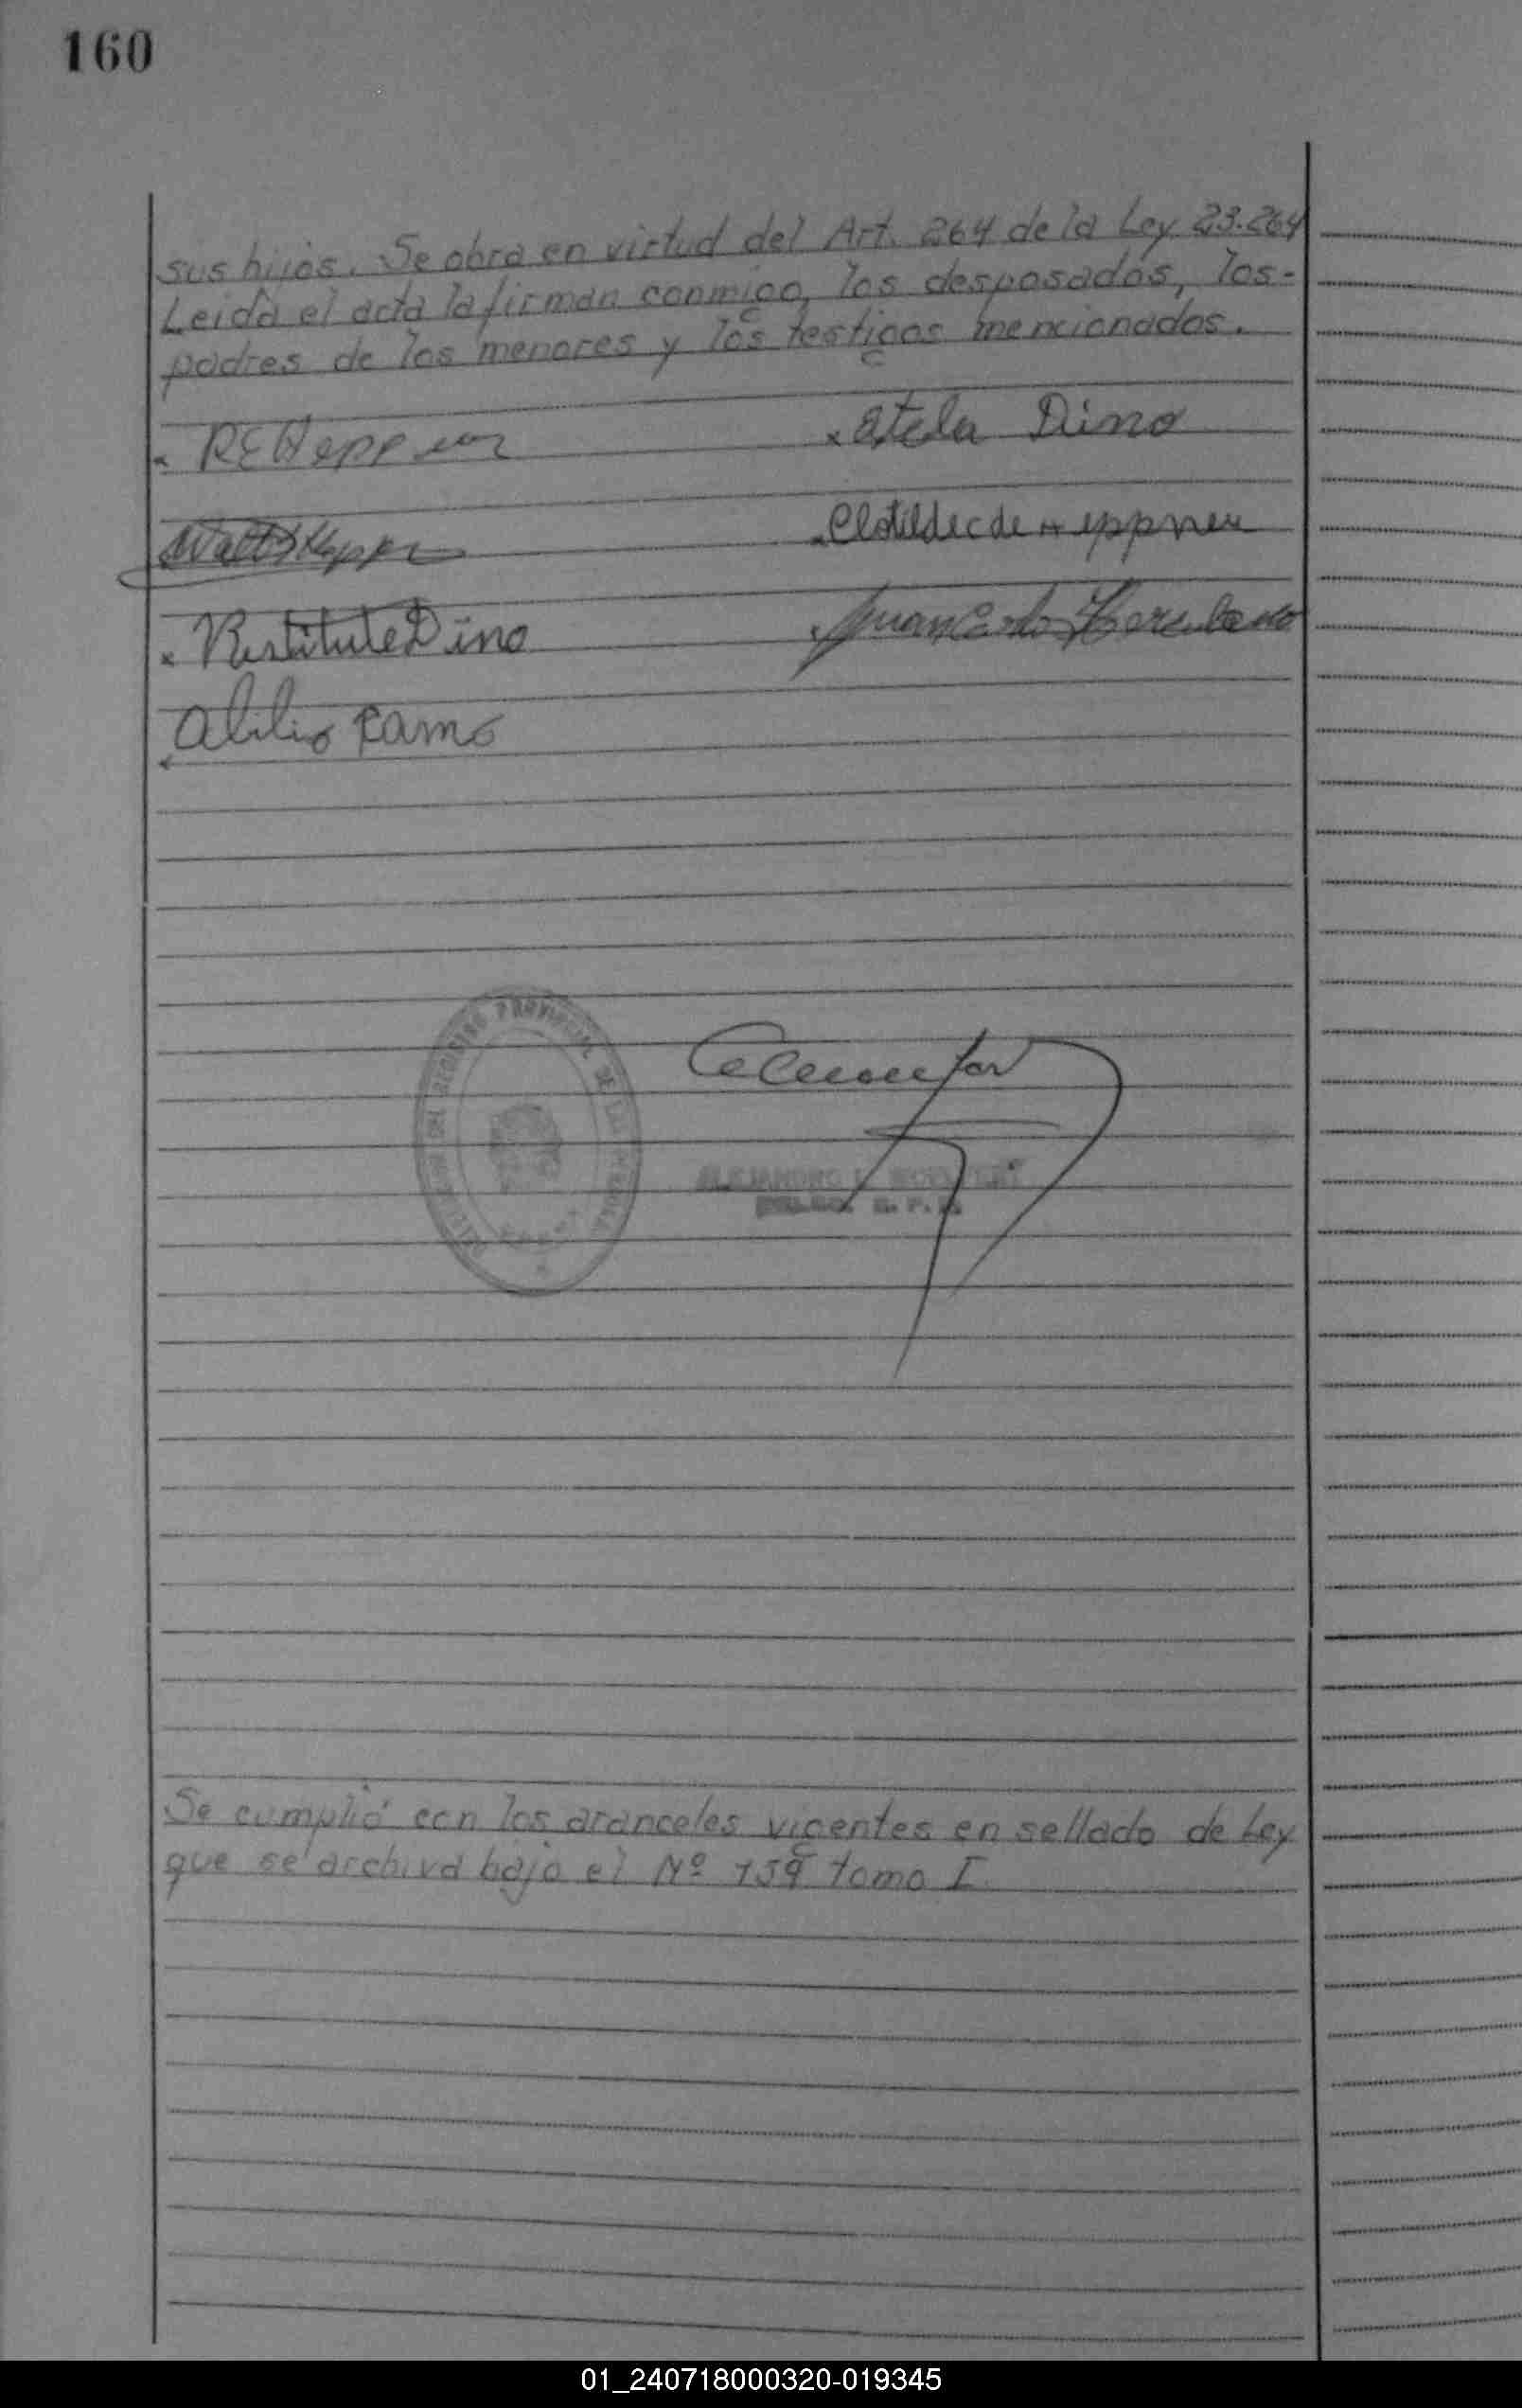 160
sus hijos. Se obra en virtud del Art. 264 de la Ley 23.264
Leida el acta la firman conmigo, los desposados, los-
padres de los menores y los testigos mencionados.
x REHeppner
x Stela Dino
Clotilde c de Heppner
x Restituto Dino
Juan Carlos
Ramo
DEL REGISTRO PROVINCIAL DE LAS PERSONAS
ALEJANDRO
Se cumplió con los aranceles vigentes en sellado de Ley
que se archiva bajo el Nº 159 tomo I.
01_240718000320-019345